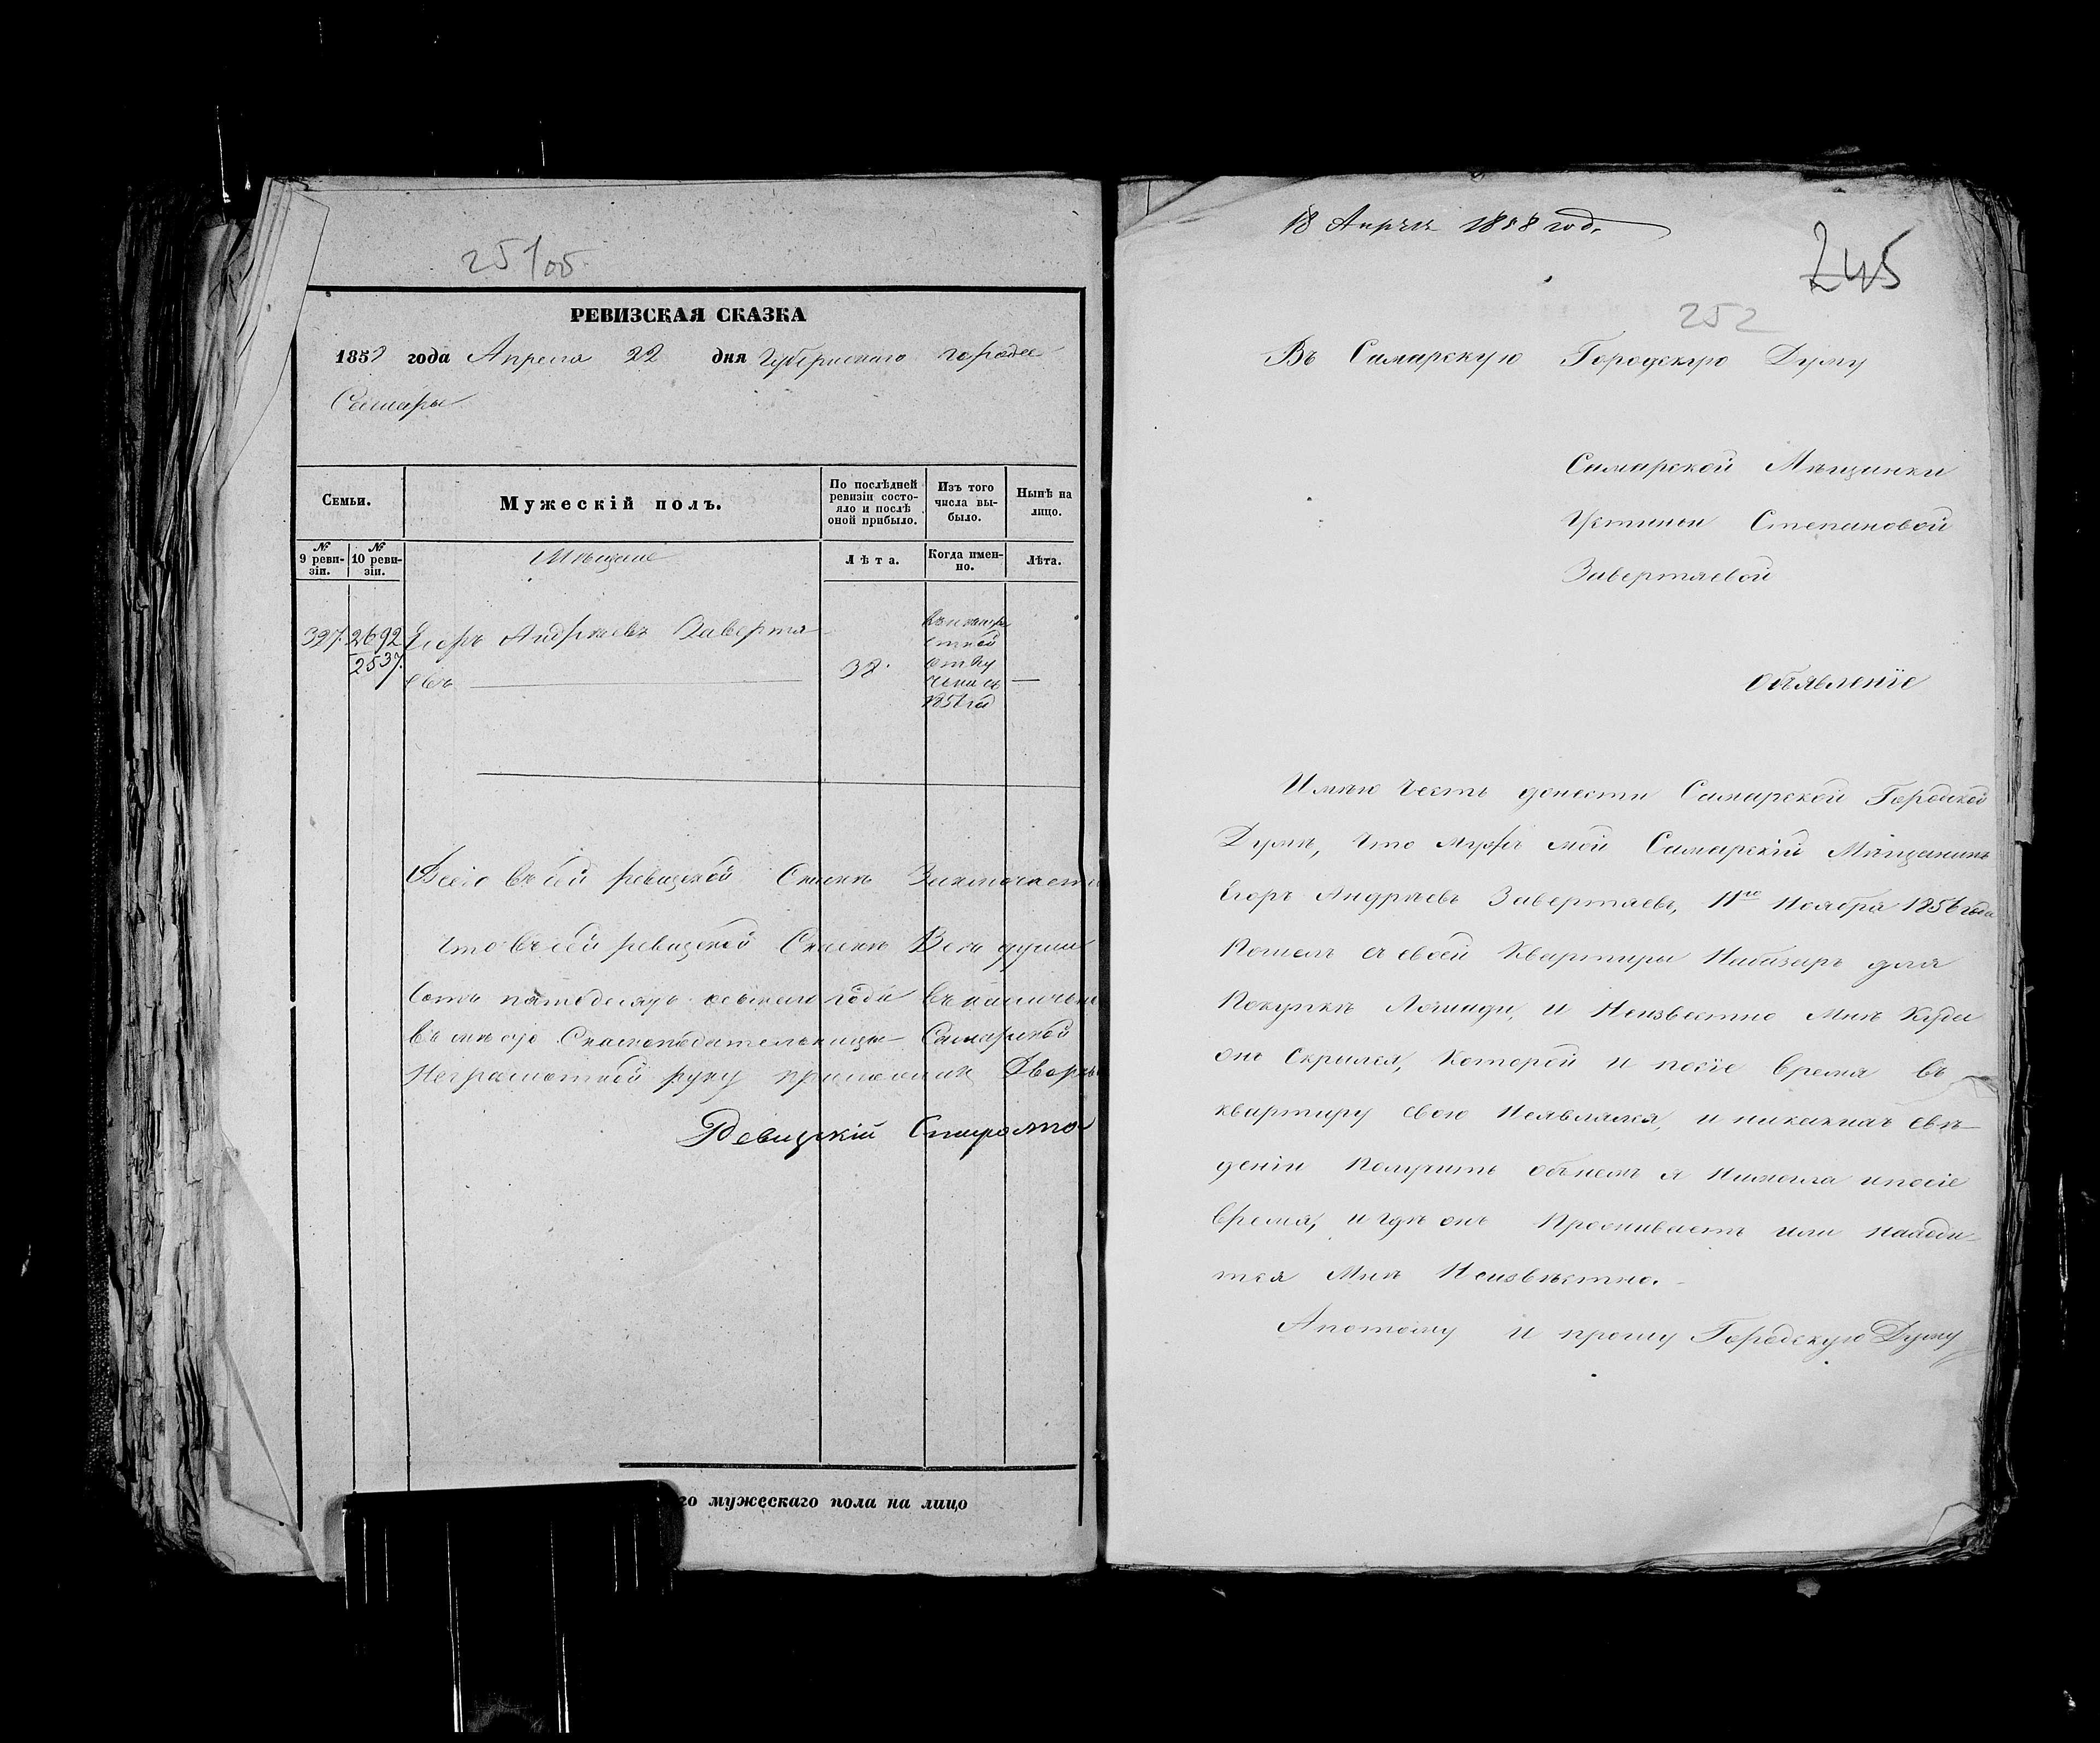 25/об.
РЕВИЗСКАЯ СКАЗКА
185 года Апреля 22 дня Губернскаго города
Самары
Семьи.
Мужескій полъ.
По послѣдней ревизіи состо-яло и послѣ оной прибыло.
Изъ того числа вы-было.
Нынѣ на лицо.
№ 9 реви-зіи.
№ 10 реви-зіи.
Мѣщане
Лѣта.
Когда имен-но.
Лѣта.
327. 2692 Егоръ Андреевъ Заверта-
2537.
евъ 38.
Всего въ сей ревизской Сказкѣ
Что въ сей ревизской Сказкѣ души
въ мѣсто Сказкоподательницы Самарской
Неграмотной руку приложилъ
Ревизскій Староста
го мужескаго пола на лицо
18 Апрѣля 1858 год.
245
252
Въ Самарскую Городскую Думу
Самарской Мѣщанки
Устиньи Степановой
Завертяевой
Объявленіе
Имѣю честь донести Самарской Городской
Думѣ, что мужъ мой Самарскій Мѣщанинъ
Егоръ Андрѣевъ Завертяевъ, 11го Ноября 1856 года
Пошелъ съ своей Квартиры Набазаръ для
Покупкѣ Лошади, и Неизвестно Мнѣ Куда
онъ Скрылся, Которой и посіе время въ
квартиру свою Неявлялся, и никакихъ свѣ-
деніи Получить обънемъ я Немогла ипосіе
время, и гдѣ онъ Проживаетъ или находи-
тся Мнѣ Неизвѣстно.
Апотому и прошу Городскую Думу